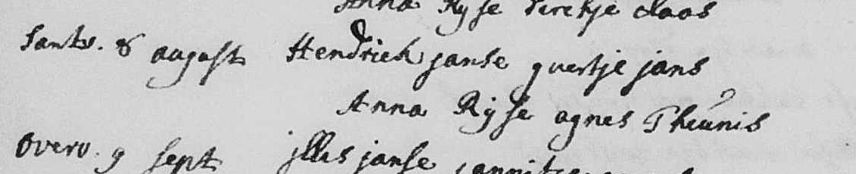 Anna Ryse Dirckje Claas
Santv. 8 august Hendrick janse gvertje jans
Anna Ryse agnes Theunis
Overv. 9 sept jlles janse